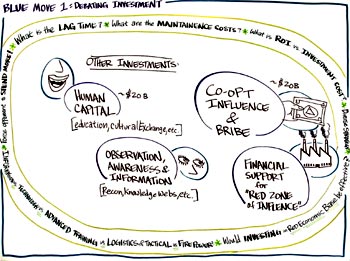 BLUE MOVE 1: DEBATING INVESTMENT
What is the LAG TIME? * What are the MAINTAINENCE COSTS? * What is ROI vs INVESTMENT COST?
OTHER INVESTMENTS:
HUMAN
CAPITAL
~$20B
[education, cultural Exchange, etc.]
CO-OPT
INFLUENCE
&
BRIBE
~$20B
OBSERVATION,
AWARENESS &
INFORMATION
[Recon, Knowledge Webs, etc.]
FINANCIAL
SUPPORT
for
"RED ZONE
of INFLUENCE"
ADVANCED TRAINING vs LOGISTICS & TACTICAL vs FIRE POWER * Would INVESTING in Red Economic Base be effective?
SPEND MORE?